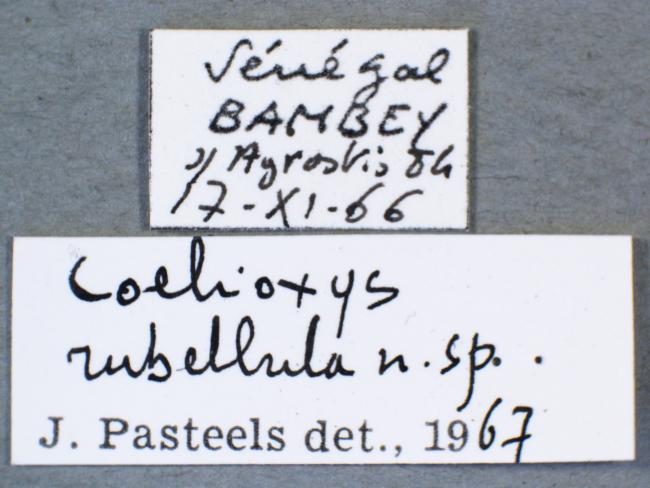 Sénégal
BAMBEY
s/ Agrostis
17-XI-66
Coelioxys
rubellula n. sp..
J. Pasteels det., 1967